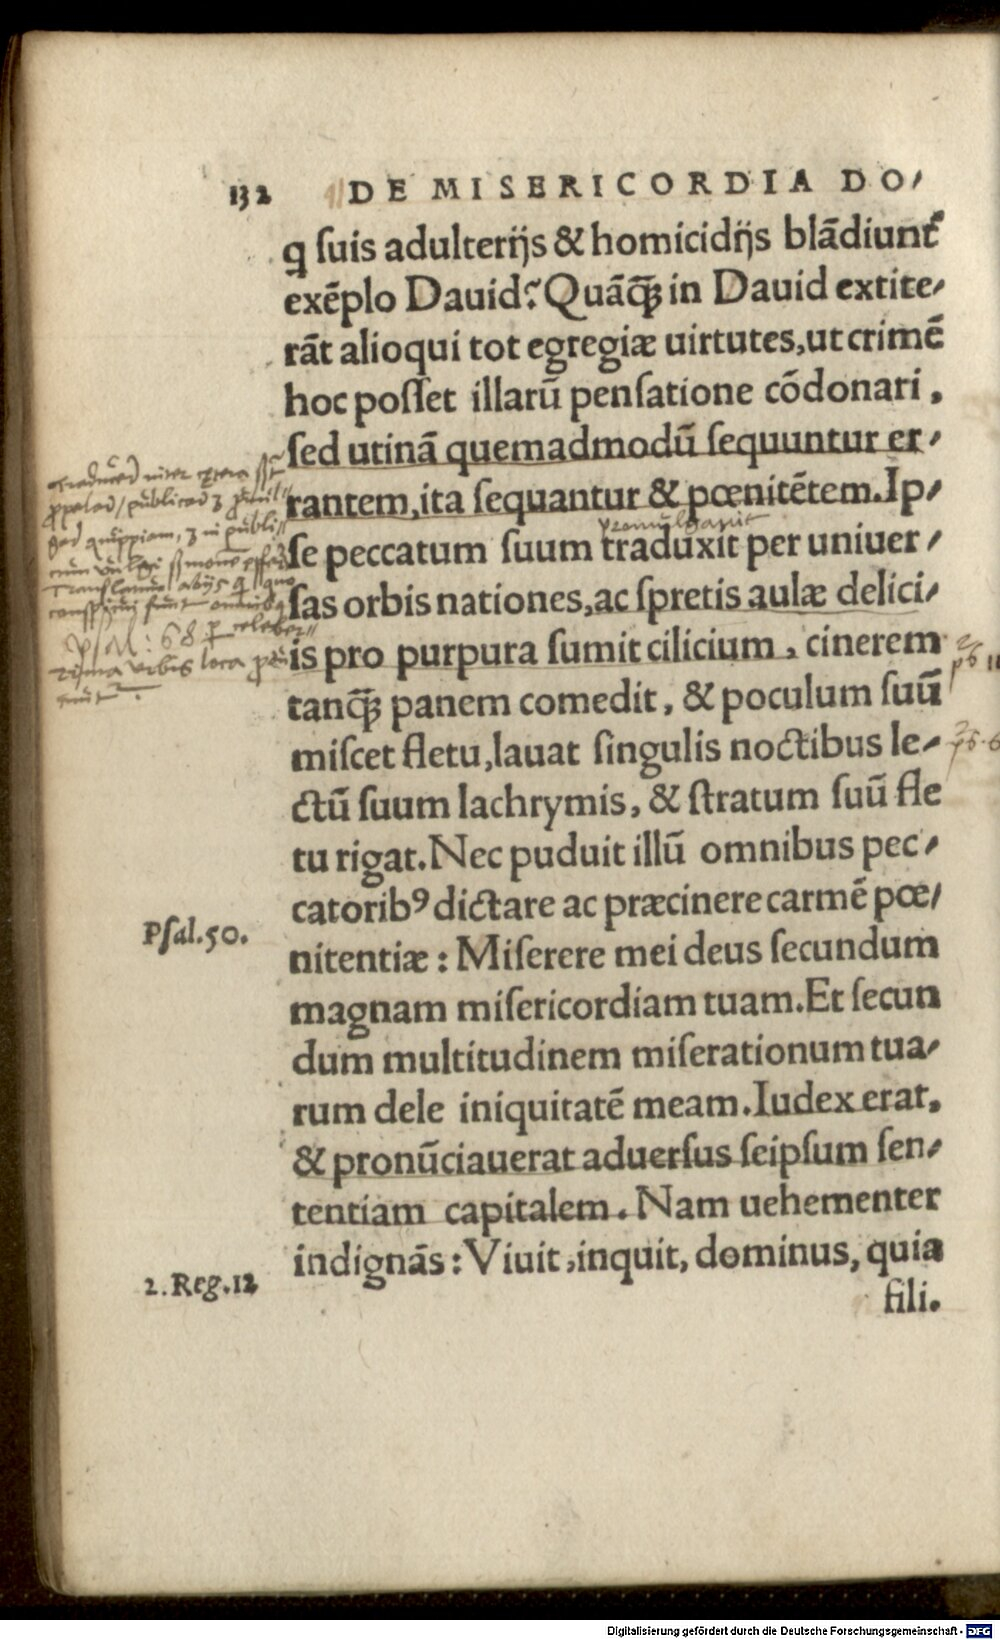 132 DE MISERICORDIA DO/
q suis adulterijs & homicidijs blãdiunt᷑
exẽplo Dauid? Quãq̃ꝫ in Dauid extite/
rãt alioqui tot egregiæ uirtutes, ut crimẽ
hoc posset illarũ pensatione cõdonari,
sed utinã quemadmodũ sequuntur er/
rantem, ita sequantur & pœnitẽtem. Ip/
promulgauit
se peccatum suum traduxit per uniuer/
sas orbis nationes, ac spretis aulæ delici/
is pro purpura sumit cilicium, cinerem
tanq̃ꝫ panem comedit, & poculum suũ
miscet fletu, lauat singulis noctibus le/
ctũ suum lachrymis, & stratum suũ fle
tu rigat. Nec puduit illũ omnibus pec/
catorib⁹ dictare ac præcinere carmẽ pœ/
Psal.50.
nitentiæ: Miserere mei deus secundum
magnam misericordiam tuam. Et secun
dum multitudinem miserationum tua/
rum dele iniquitatẽ meam. Iudex erat,
& pronũciauerat aduersus seipsum sen/
tentiam capitalem. Nam uehementer
indignãs: Viuit, inquit, dominus, quia
2. Reg.12
fili.
Digitalisierung gefördert durch die Deutsche Forschungsgemeinschaft - DFG